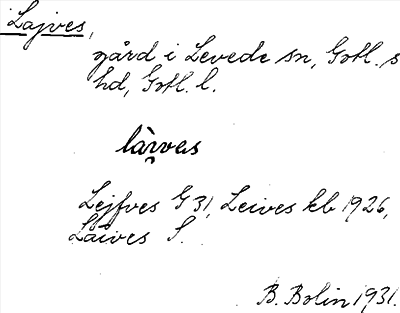 Lajves,
gård i Levede sn, Gotl. s
hd, Gotl. l.
làı̯vės
Lejfves G 31, Leives kb 1926,
Läives S.
B. Bolin 1931.